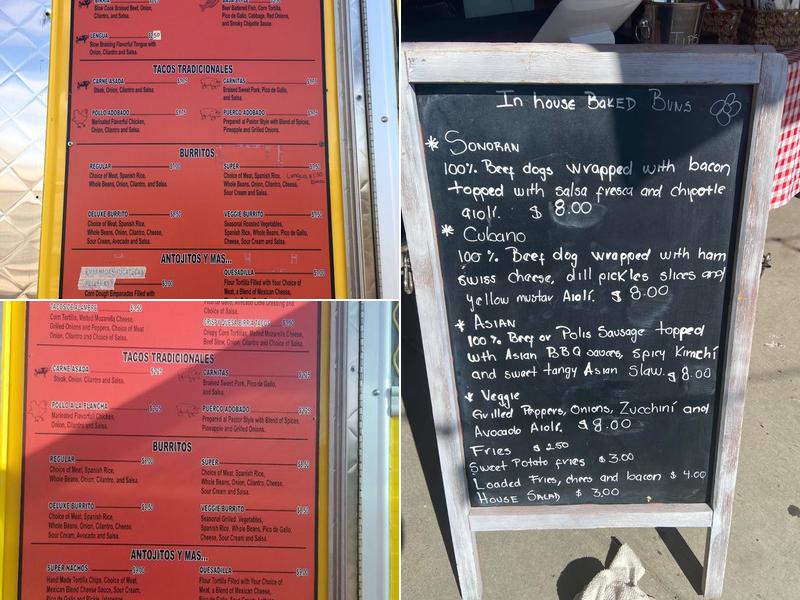 BIRRIA
Slow Cook Braised Beef, Onion,
Cilantro, and Salsa.
Beer Battered Fish, Corn Tortilla,
Pico de Gallo, Cabbage, Red Onions,
and Smoky Chipotle Sauce.
LENGUA
Slow Braising Flavorful Tongue with
Onion, Cilantro and Salsa.
TACOS TRADICIONALES
CARNE ASADA
Steak, Onion, Cilantro and Salsa.
CARNITAS
Braised Sweet Pork, Pico de Gallo,
and Salsa.
POLLO ADOBADO
Marinated Flavorful Chicken,
Onion, Cilantro and Salsa.
PUERCO ADOBADO
Prepared al Pastor Style with Blend of Spices,
Pineapple and Grilled Onions.
BURRITOS
REGULAR
Choice of Meat, Spanish Rice,
Whole Beans, Onion, Cilantro, and Salsa.
SUPER
Choice of Meat, Spanish Rice,
Whole Beans, Onion, Cilantro, Cheese,
Sour Cream and Salsa.
DELUXE BURRITO
Choice of Meat, Spanish Rice,
Whole Beans, Onion, Cilantro, Cheese,
Sour Cream, Avocado and Salsa.
VEGGIE BURRITO
Seasonal Roasted Vegetables,
Spanish Rice, Whole Beans, Pico de Gallo,
Cheese, Sour Cream and Salsa.
ANTOJITOS Y MAS...
QUESADILLA
Corn Dough Empanadas Filled with
Flour Tortilla Filled with Your Choice of
Meat, a Blend of Mexican Cheese,
Corn Tortilla, Melted Mozarella Cheese,
Grilled Onions and Peppers, Choice of Meat
Onion, Cilantro and Choice of Salsa.
CRISPY QUESABIRRIA TACOS
Crispy Corn Tortillas, Melted Mozarella Cheese,
Beef Stew, Onion, Cilantro and Choice of Salsa.
TACOS TRADICIONALES
CARNE ASADA $2.25
Steak, Onion, Cilantro and Salsa.
CARNITAS $2.25
Braised Sweet Pork, Pico de Gallo,
and Salsa.
POLLO A LA PLANCHA $2.25
Marinated Flavorful Chicken,
Onion, Cilantro and Salsa.
PUERCO ADOBADO $2.25
Prepared al Pastor Style with Blend of Spices,
Pineapple and Grilled Onions.
BURRITOS
REGULAR
Choice of Meat, Spanish Rice,
Whole Beans, Onion, Cilantro, and Salsa.
SUPER
Choice of Meat, Spanish Rice,
Whole Beans, Onion, Cilantro, Cheese,
Sour Cream and Salsa.
DELUXE BURRITO
Choice of Meat, Spanish Rice,
Whole Beans, Onion, Cilantro, Cheese,
Sour Cream, Avocado and Salsa.
VEGGIE BURRITO
Seasonal Grilled Vegetables,
Spanish Rice, Whole Beans, Pico de Gallo,
Cheese, Sour Cream and Salsa.
ANTOJITOS Y MAS...
SUPER NACHOS
Hand Made Tortilla Chips, Choice of Meat,
Mexican Blend Cheese Sauce, Sour Cream,
Pico de Gallo and Pickle Jalapenos.
QUESADILLA
Flour Tortilla Filled with Your Choice of
Meat, a Blend of Mexican Cheese,
TIPS
In house Baked Buns
* Sonoran
100% Beef dogs wrapped with bacon
topped with salsa fresca and chipotle
aioli. $ 8.00
* Cubano
100% Beef dog wrapped with ham
swiss cheese, dill pickles slices and
yellow mustar Aioli. $ 8.00
* Asian
100% Beef or Polis Sausage topped
with Asian BBQ sauces, spicy Kimchi
and sweet tangy Asian Slaw. $ 8.00
* Veggie
Grilled Peppers, Onions, Zucchini and
Avocado Aioli. $8.00
Fries $ 2.50
Sweet Potato fries $ 3.00
Loaded Fries, chees and bacon $ 4.00
House Salad $ 3.00